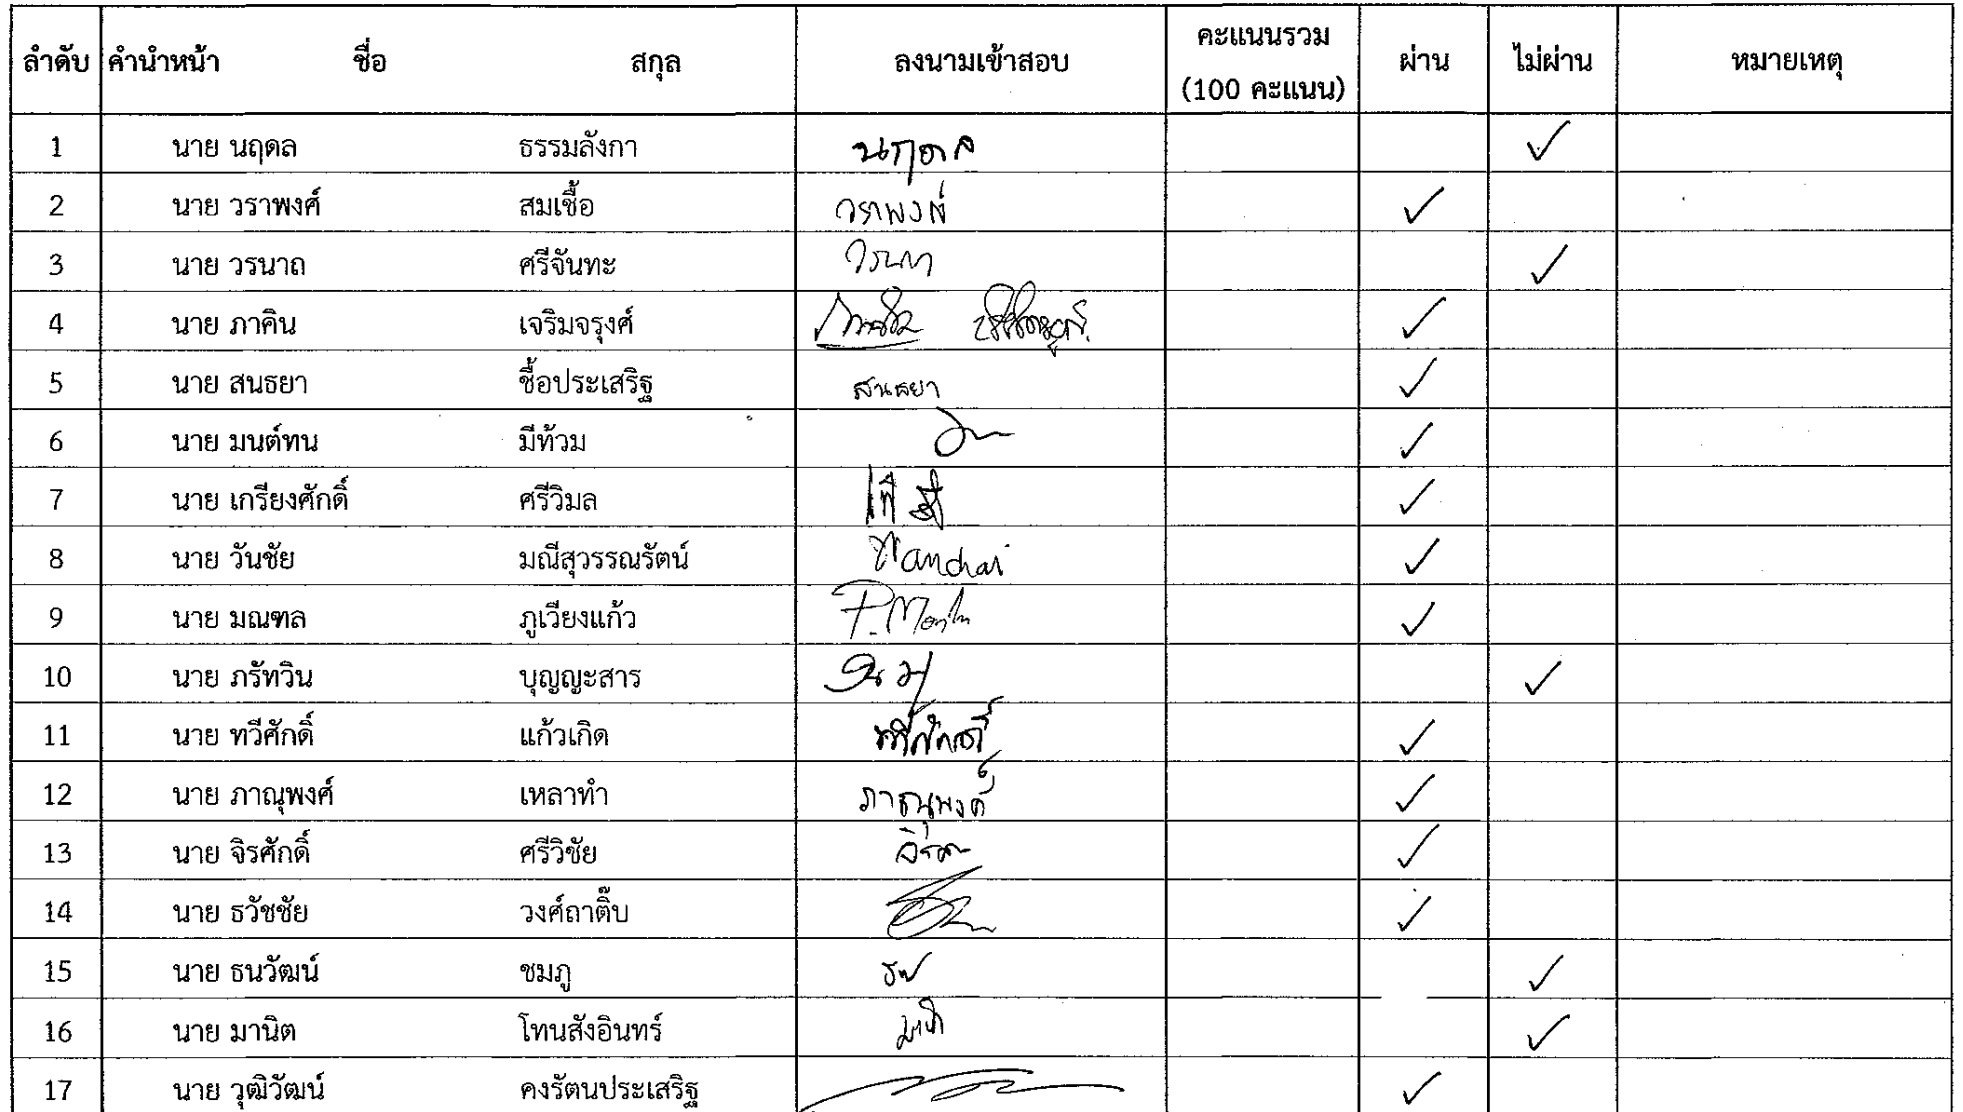 ลำดับ คำนำหน้า ชื่อ สกุล ลงนามเข้าสอบ คะแนนรวม (100 คะแนน) ผ่าน ไม่ผ่าน หมายเหตุ
1 นาย นฤดล ธรรมลังกา นฤดล ✓
2 นาย วราพงศ์ สมเชื้อ วราพงษ์ ✓
3 นาย วรนาถ ศรีจันทะ ✓
4 นาย ภาคิน เจริมจรุงศ์ ✓
5 นาย สนธยา ชื้อประเสริฐ สนธยา ✓
6 นาย มนต์ทน มีท้วม ✓
7 นาย เกรียงศักดิ์ ศรีวิมล ✓
8 นาย วันชัย มณีสุวรรณรัตน์ Wanchai ✓
9 นาย มณฑล ภูเวียงแก้ว ✓
10 นาย ภรัทวิน บุญญะสาร ✓
11 นาย ทวีศักดิ์ แก้วเกิด ทวีศักดิ์ ✓
12 นาย ภาณุพงศ์ เหลาทำ ภาณุพงศ์ ✓
13 นาย จิรศักดิ์ ศรีวิชัย ✓
14 นาย ธวัชชัย วงศ์ถาติ๊บ ✓
15 นาย ธนวัฒน์ ชมภู ✓
16 นาย มานิต โทนสังอินทร์ ✓
17 นาย วุฒิวัฒน์ คงรัตนประเสริฐ ✓